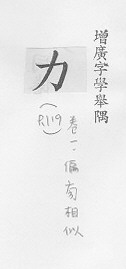 增廣字學舉隅
力
卷一.偏旁相似
(P.119)